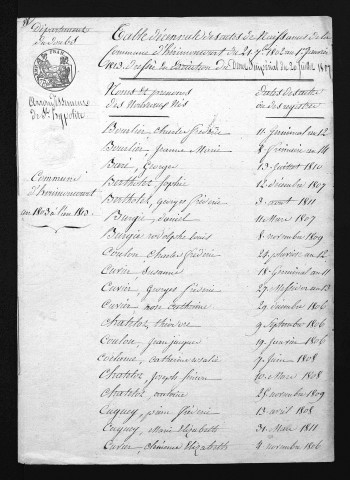 Département
du doubs
Arrondissement
de St. hypolite
Commune
d'hérimoncourt
an 1803 a l'an 1813
Table décennale des actes de Naissances de la
Commune d'hérimoncourt du 21 7bre 1802 au 1er janvier
1813 Dressée en Exécution du Décret Impérial du 20 Juillet 1807
Noms et prénoms
des Individus Nés
Dates des actes
ou des registres
Bourlin, charles fréderic 11 germinal an 12
Bourlin, jeanne Marie 8 frimaire an 14
Bari, Georges 13 juillet 1810
Berthelot, Sophie 12 decembre 1807
Berthelot, georges fréderic 3 aout 1811
Burgi, daniel 11 Mars 1807
Burgi, rodolphe louis 8 novembre 1809
Coulon, charles fréderic an 12
Cuvier, Susanne 18 germinal an 11
Cuvier, georges fréderic 27 Messidor an 13
Cuvier, catherine 29 1806
Chatelot, théodore 9 Septembre 1806
Coulon, jean jacques 19 janvier 1806
catherine rosalie 7 juin 1808
Chatelot, joseph 10 Mars 1808
Chatelot, 28 novembre 1809
Cugney, pierre fréderic 13 avril 1808
Cugney, Marie Elizabeth 31 Mars 1811
Cuvier, Elizabeth 4 novembre 1806